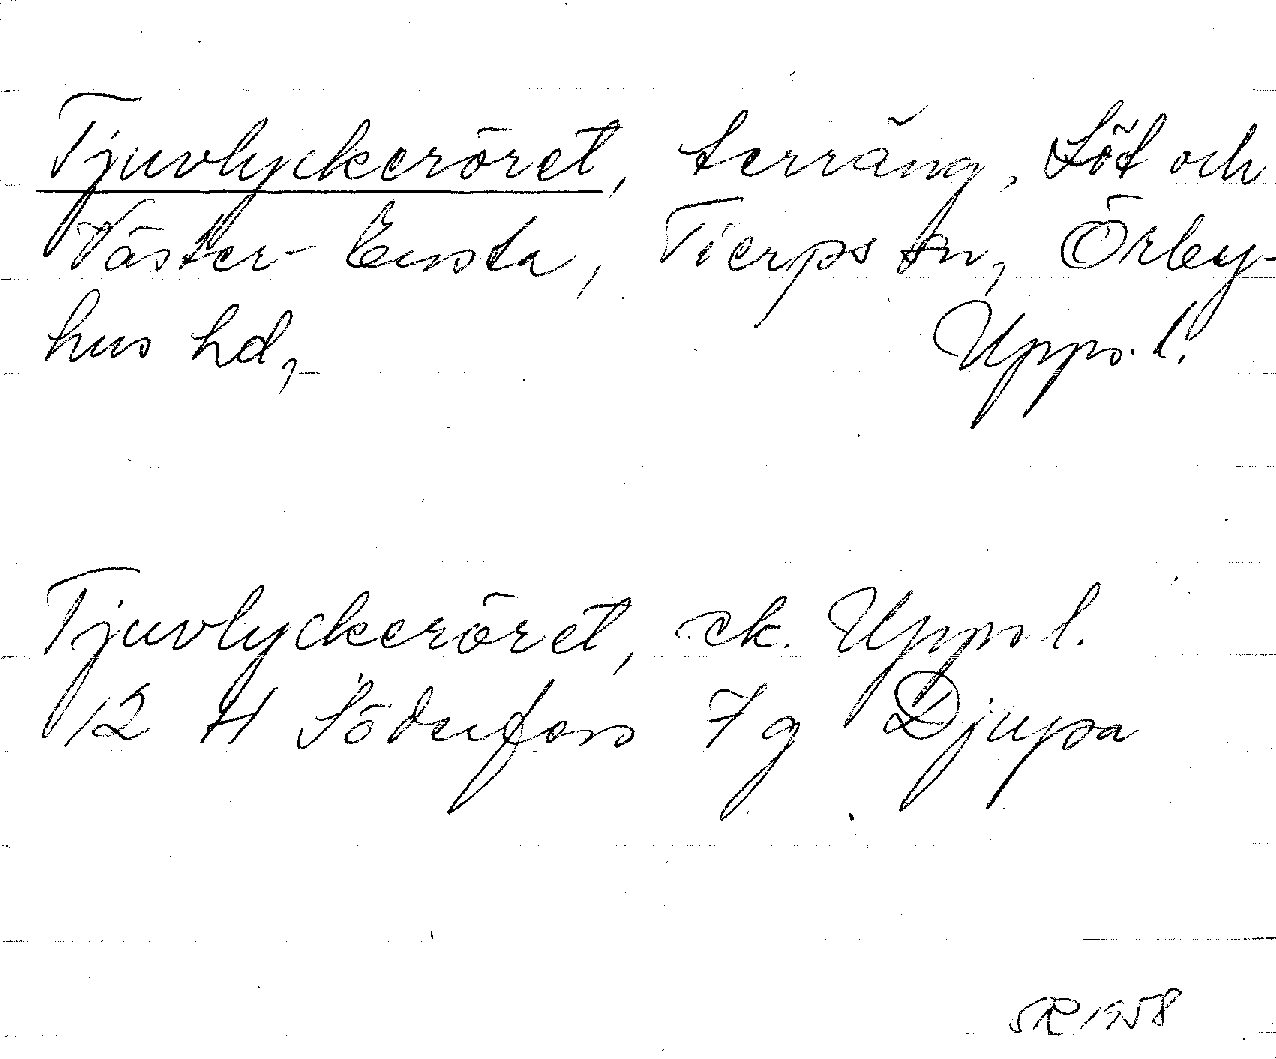 Tjuvlyckeröret, terräng, Löt och
Väster-Ensta, Tierps sn, Örby-
hus hd, Upps. l.
Tjuvlyckeröret, ek. Upps l.
12 H Söderfors 7 g Djupa
SR 1958